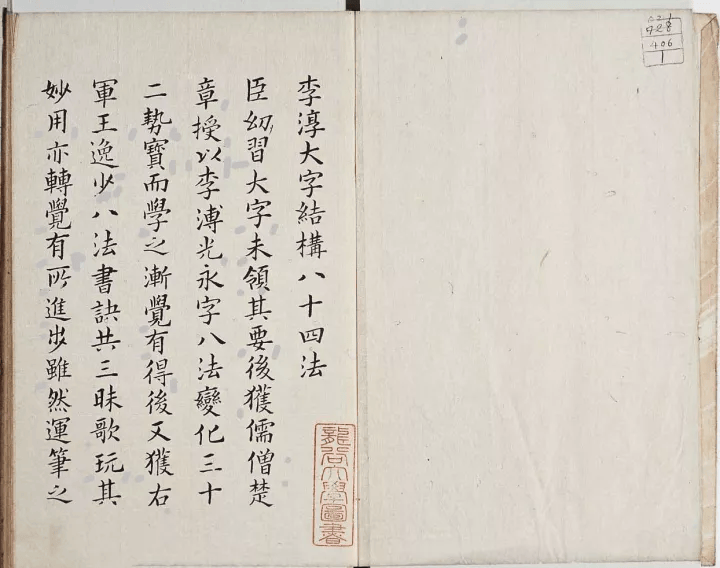 李淳大字結構八十四法
臣㓜習大字未領其要後獲儒僧楚
章授以李溥光永字八法變化三十
二勢寶而學之漸覺有得後又獲右
軍王逸少八法書訣共三昧歌玩其
妙用亦轉覺有所進步雖然運筆之
龍谷大學圖書
406
1